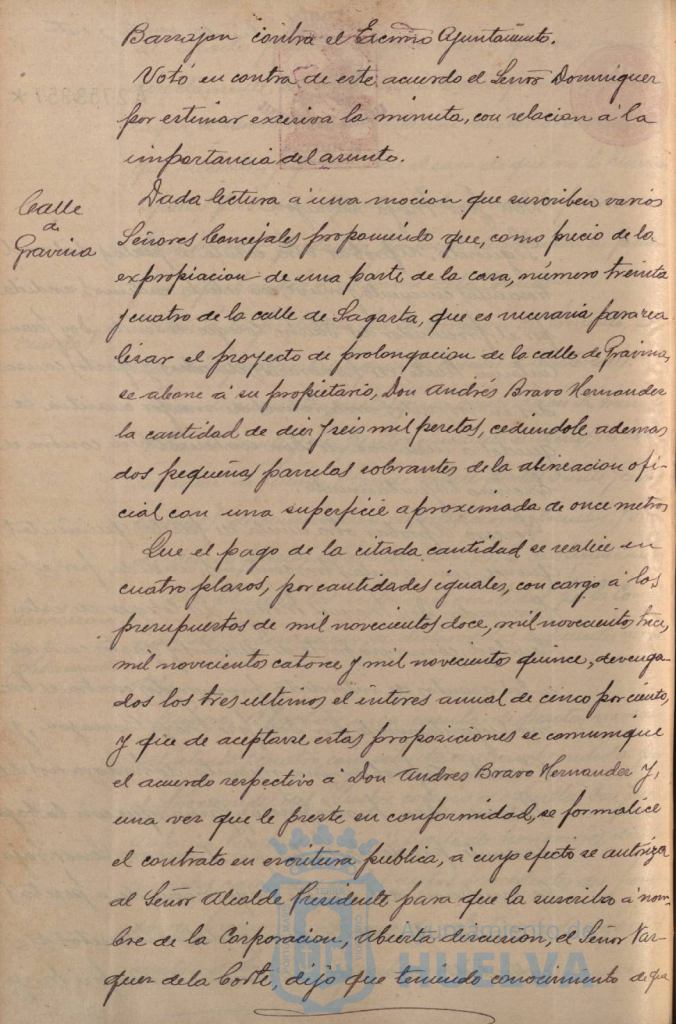 Barrajon contra el Excmo Ayuntamiento.
Votó en contra de este acuerdo el Señor Dominguez
por estimar excesiva la minuta, con relacion á la
importancia del asunto.
Calle
de
Gravina
Dada lectura á una mocion que suscriben varios
Señores Concejales proponiendo que, como precio de la
expropiacion de una parte de la casa, número treinta
y cuatro de la calle de Sagasta, que es necesaria para rea
lizar el proyecto de prolongacion de la calle de Gravina,
se abone á su propietario, Don Andrés Bravo Hernandez
la cantidad de diez y seis mil pesetas, cediendole ademas
dos pequeñas parcelas sobrantes de la alineacion ofi-
cial con una superficie aproximada de once metros
Que el pago de la citada cantidad se realice en
cuatro plazos, por cantidades iguales, con cargo á los
presupuestos de mil novecientos doce, mil novecientos trece,
mil novecientos catorce y mil novecientos quince, devenga-
dos los tres ultimos el interes anual de cinco por ciento,
y que de aceptarse estas proposiciones se comunique
el acuerdo respectivo á Don Andres Bravo Hernandez y,
una vez que le preste su conformidad, se formalice
el contrato en escritura publica, á cuyo efecto se autoriza
al Señor Alcalde Presidente para que la suscriba á nom-
bre de la Corporacion, Abierta discusion, el Señor Vaz-
quez de la Corte, dijo que teniendo conocimiento de que
Ayuntamiento de
HUELVA